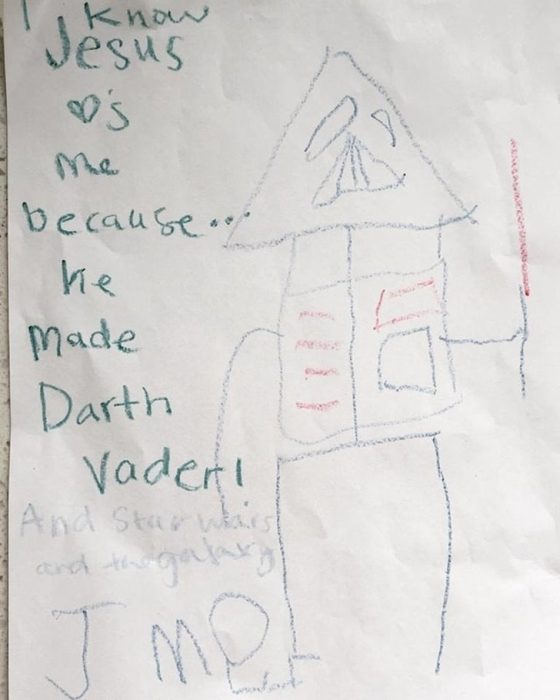 I know
Jesus
♡'s
me
because...
he
made
Darth
Vader!
And Star Wars
and the galaxy
J M O